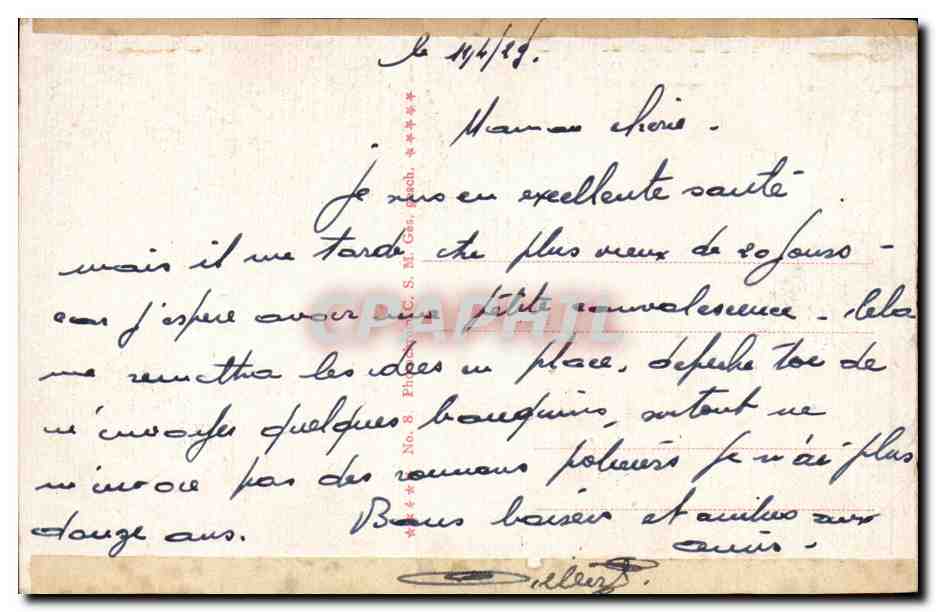 le 14/4/29.
Maman chérie -
Je suis en excellente santé
mais il me tarde être plus vieux de 20 jours -
car j'espère avoir une petite convalescence - Cela
me remettra les idées en place, dépêche toi de
m'envoyer quelques bouquins, surtout ne
m'envoie pas des romans policiers je n'ai plus
douze ans. Bons baisers et amitiés aux
amis -
No. 8. C. S. M. Ges. gesch.
CPAPHIL